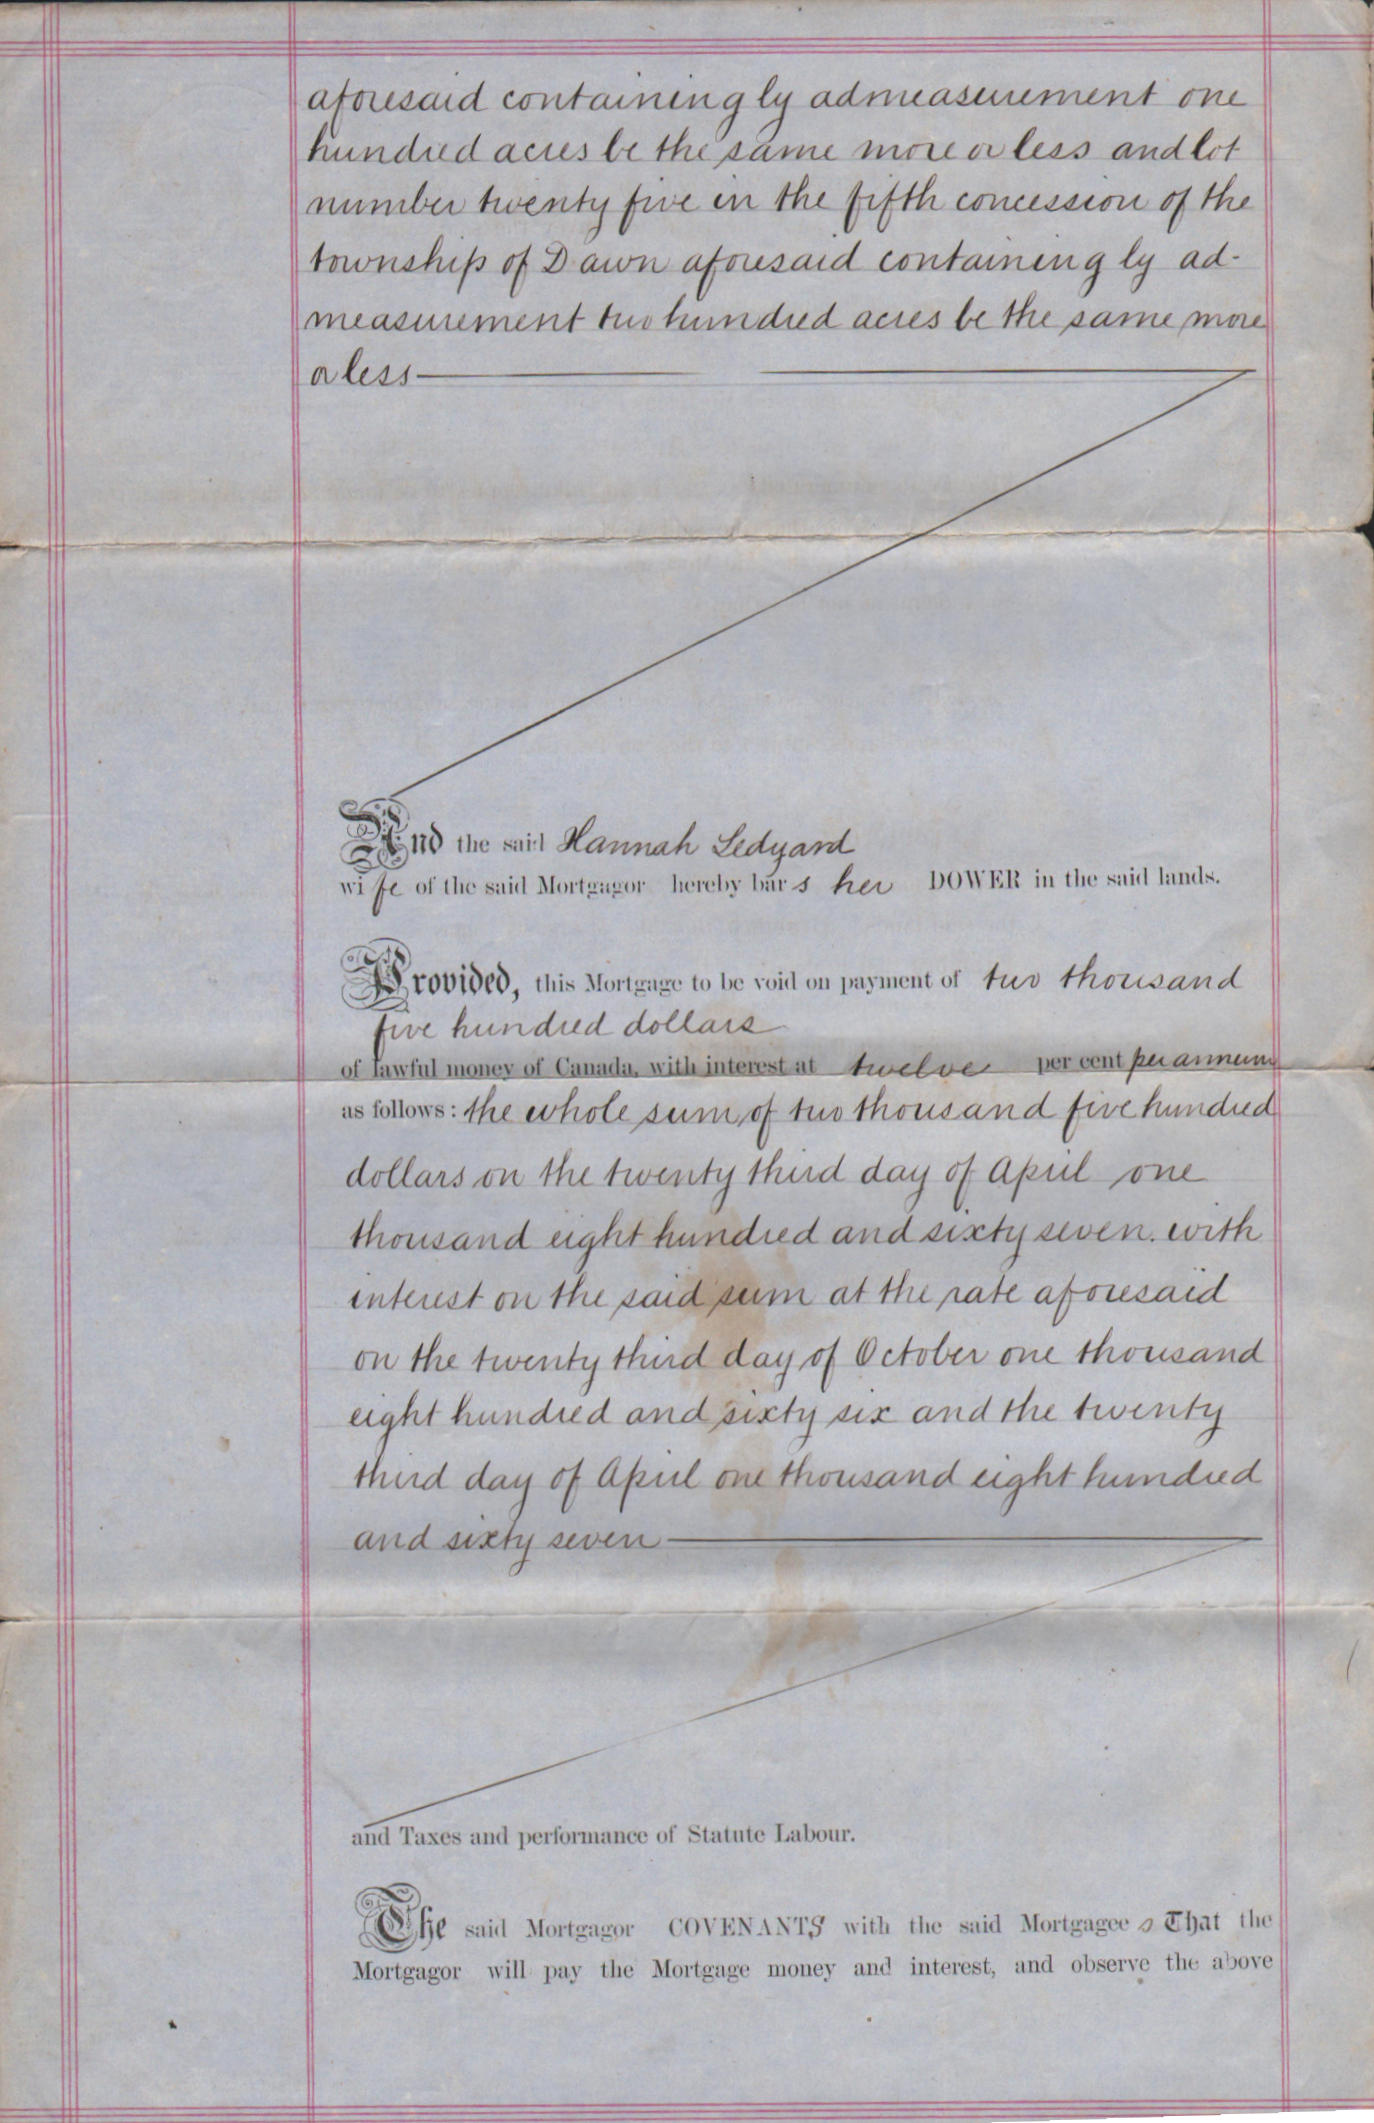 aforesaid containing by admeasurement one
hundred acres be the same more or less and lot
number twenty five in the fifth concession of the
township of Dawn aforesaid containing by ad-
measurement two hundred acres be the same more
or less
And the said Hannah Ledyard
wife of the said Mortgagor hereby bars her DOWER in the said lands.
Provided, this Mortgage to be void on payment of two thousand
five hundred dollars
of lawful money of Canada, with interest at twelve per cent per annum
as follows: the whole sum of two thousand five hundred
dollars on the twenty third day of April one
thousand eight hundred and sixty seven. with
interest on the said sum at the rate aforesaid
on the twenty third day of October one thousand
eight hundred and sixty six and the twenty
third day of April one thousand eight hundred
and sixty seven
and Taxes and performance of Statute Labour.
The said Mortgagor COVENANTS with the said Mortgagee s That the
Mortgagor will pay the Mortgage money and interest, and observe the above